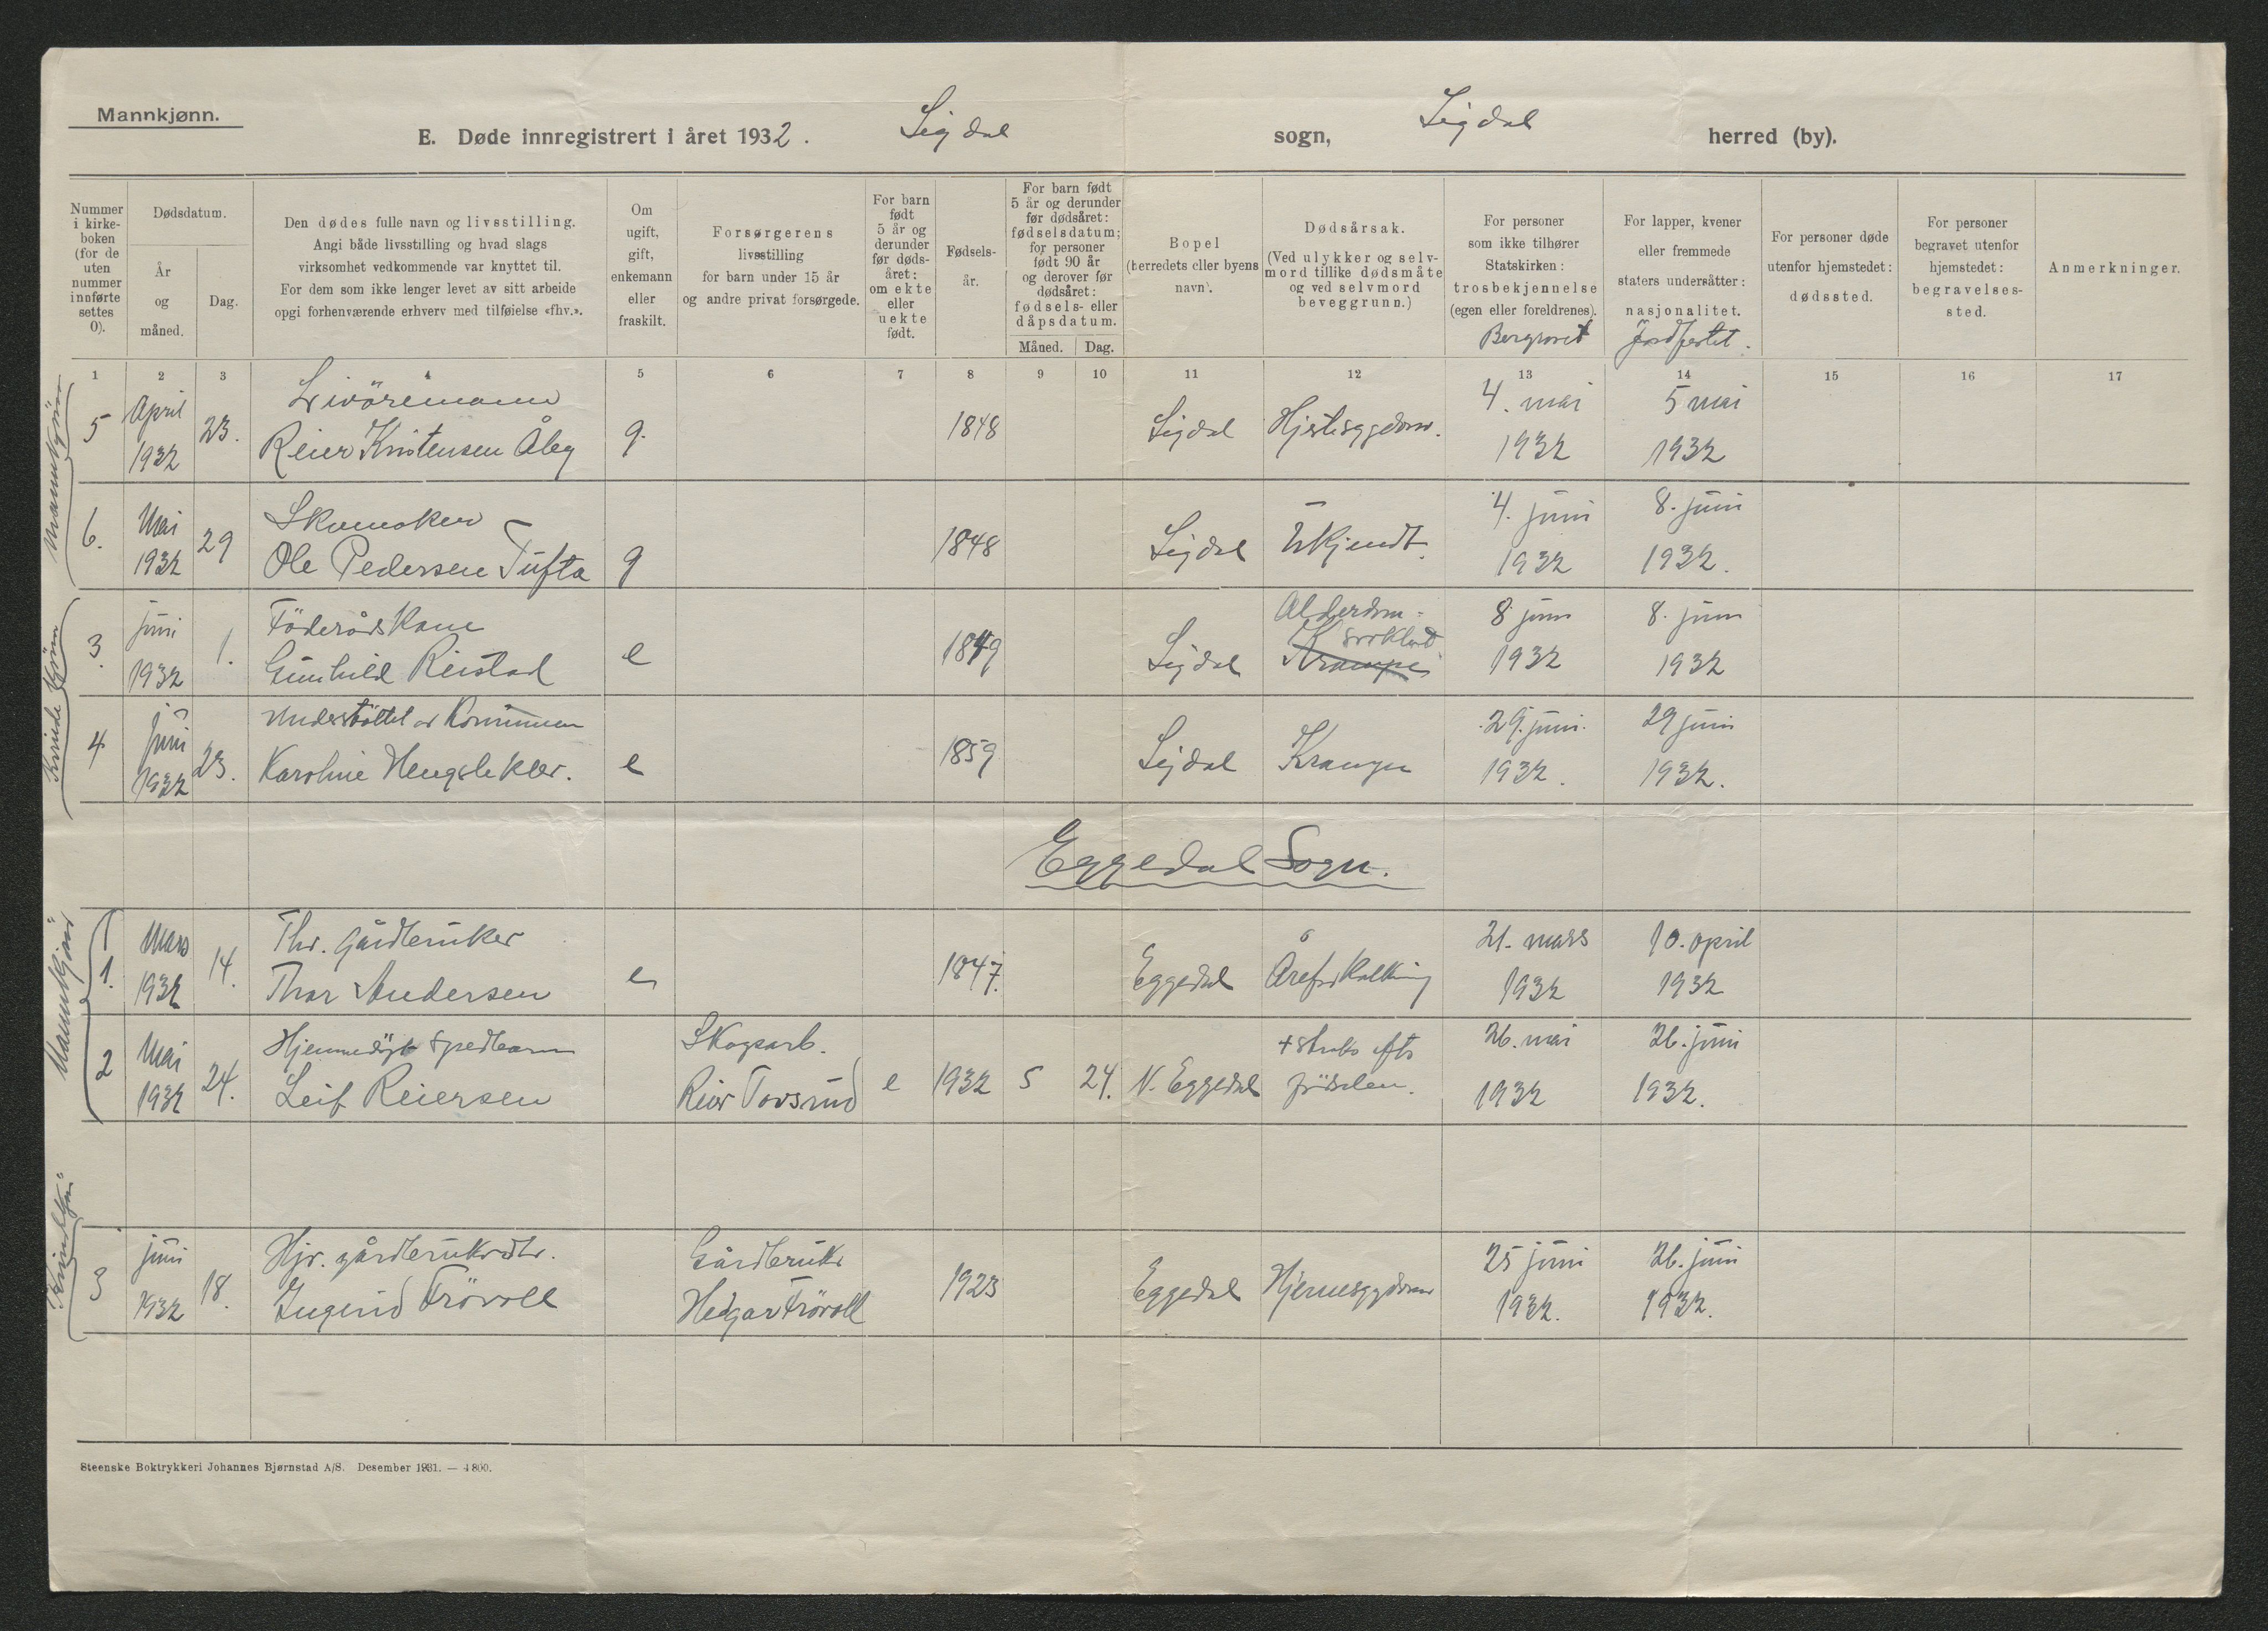 Mannkjønn.
E. Døde innregistrert i året 1932. Sigdal sogn, Sigdal herred (by).
Nummer i kirkeboken (for de uten nummer innførte settes 0).
Dødsdatum.
År og måned.
Dag.
Den dødes fulle navn og livsstilling.
Angi både livsstilling og hvad slags
virksomhet vedkommende var knyttet til.
For dem som ikke lenger levet av sitt arbeide
opgi forhenværende erhverv med tilføielse «fhv.».
Om ugift, gift, enkemann eller fraskilt.
Forsørgerens
livsstilling
for barn under 15 år
og andre privat forsørgede.
For barn født 5 år og derunder før dødsåret: om ekte eller uekte født.
Fødselsår.
For barn født 5 år og derunder før dødsåret: fødselsdatum; for personer født 90 år og derover før dødsåret: fødsels- eller dåpsdatum.
Måned. Dag.
Bopel
(herredets eller byens navn).
Dødsårsak.
(Ved ulykker og selvmord tillike dødsmåte og ved selvmord beveggrunn.)
For personer som ikke tilhører Statskirken: trosbekjennelse (egen eller foreldrenes).
Begravet
For lapper, kvener eller fremmede staters undersåtter: nasjonalitet.
Jordfestet.
For personer døde utenfor hjemstedet: dødssted.
For personer begravet utenfor hjemstedet: begravelsessted.
Anmerkninger.
1 2 3 4 5 6 7 8 9 10 11 12 13 14 15 16 17
Mannkjønn
5 April 1932 23. Livöremann
Reier Kristensen Åby g. 1848 Sigdal Hjertesygdom. 4. mai 1932 5 mai 1932
6. Mai 1932 29 Skomaker
Ole Pedersen Tufta g 1848 Sigdal Ukjendt. 4. juni 1932 8. juni 1932.
Kvindekjønn
3. juni 1932 1. Föderådskone
Gunhild Reistad e 1849 Sigdal Alderdom-
svakhed
Krampe 8 juni 1932 8. juni 1932
4 juni 1932 23. Understöttet av Kommunen
Karoline e 1859 Sigdal Krampe 29. juni 1932. 29 juni 1932.
Eggedal Sogn.
Mannkjön
1. Mars 1932 14. Fhv. Gårdbruker
Thor Andersen e 1847. Eggedal Åreforkalkning 21. mars 1932 10. april 1932
2 Mai 1932 24. Hjemmedöpt Spedbarn
Leif Reiersen Skogsarb.
Reier Tovsrud e 1932 5 24. N. Eggedal + straks efter
födselen. 26. mai 1932 26. juni 1932.
Kvindkjön
3 juni 1932 18. Hjv. gårdbrukerdtr.
Ingerid Frövoll Gårdbruker
Helgar Frövoll 1923 Eggedal Hjernesygdom 25 juni 1932. 26. juni 1932.
Steenske Boktrykkeri Johannes Bjørnstad A/S. Desember 1931. — 4800.